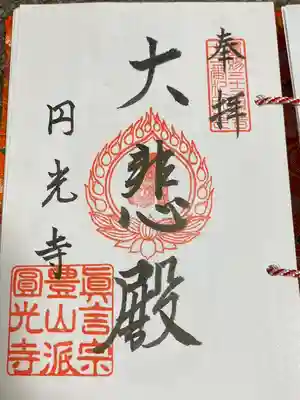 奉拝
大悲殿
円光寺
眞言宗
豊山派
圓光寺